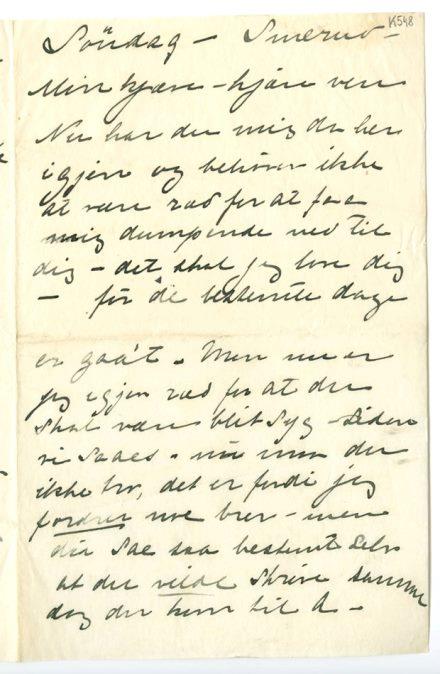 K548
Söndag – Smerud –
Min kjære – kjære ven
Nu har du mig da her
igjen og behöver ikke
at være ræd for at faa
mig dumpende ned til
dig – det skal jeg love dig
– för de bestemte dage
er gaa't. Men nu er
jeg igjen ræd for at du
skal være blit syg – siden
vi saaes – nu maa du
ikke tro, det er fordi jeg
fordrer noe brev – men
du sae saa bestemt selv
at du vilde skrive samme
dag du kom til A –